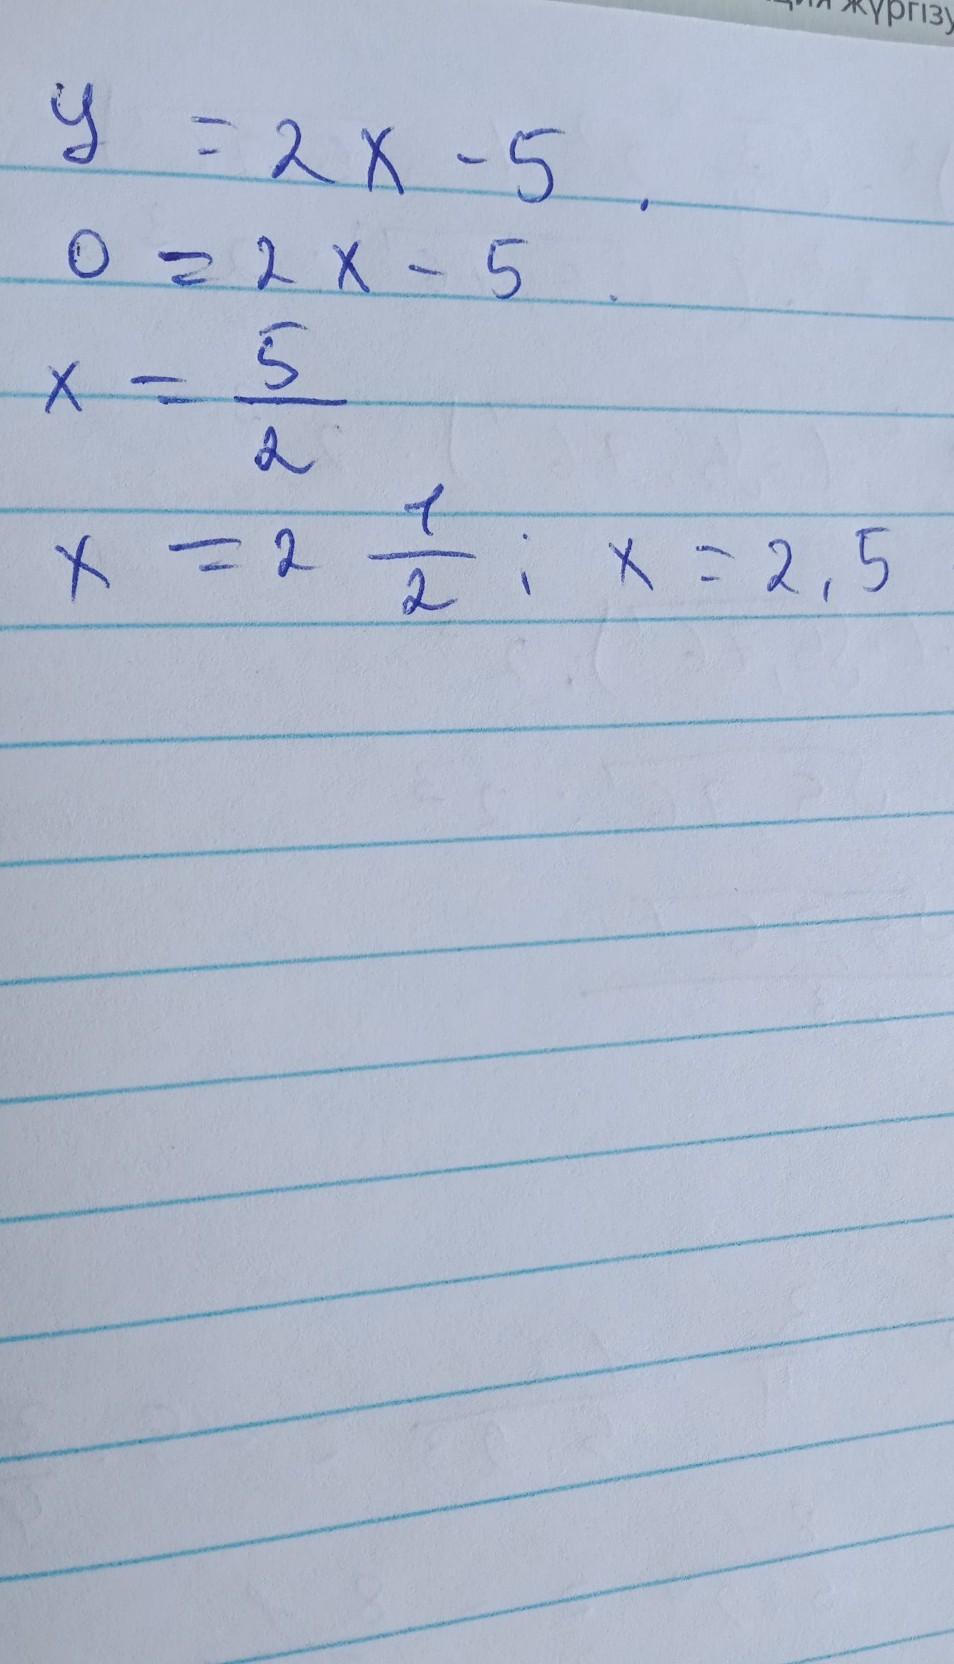 жүргізу
y = 2x - 5.
0 = 2x - 5.
x = 5/2
x = 2 1/2; x = 2,5